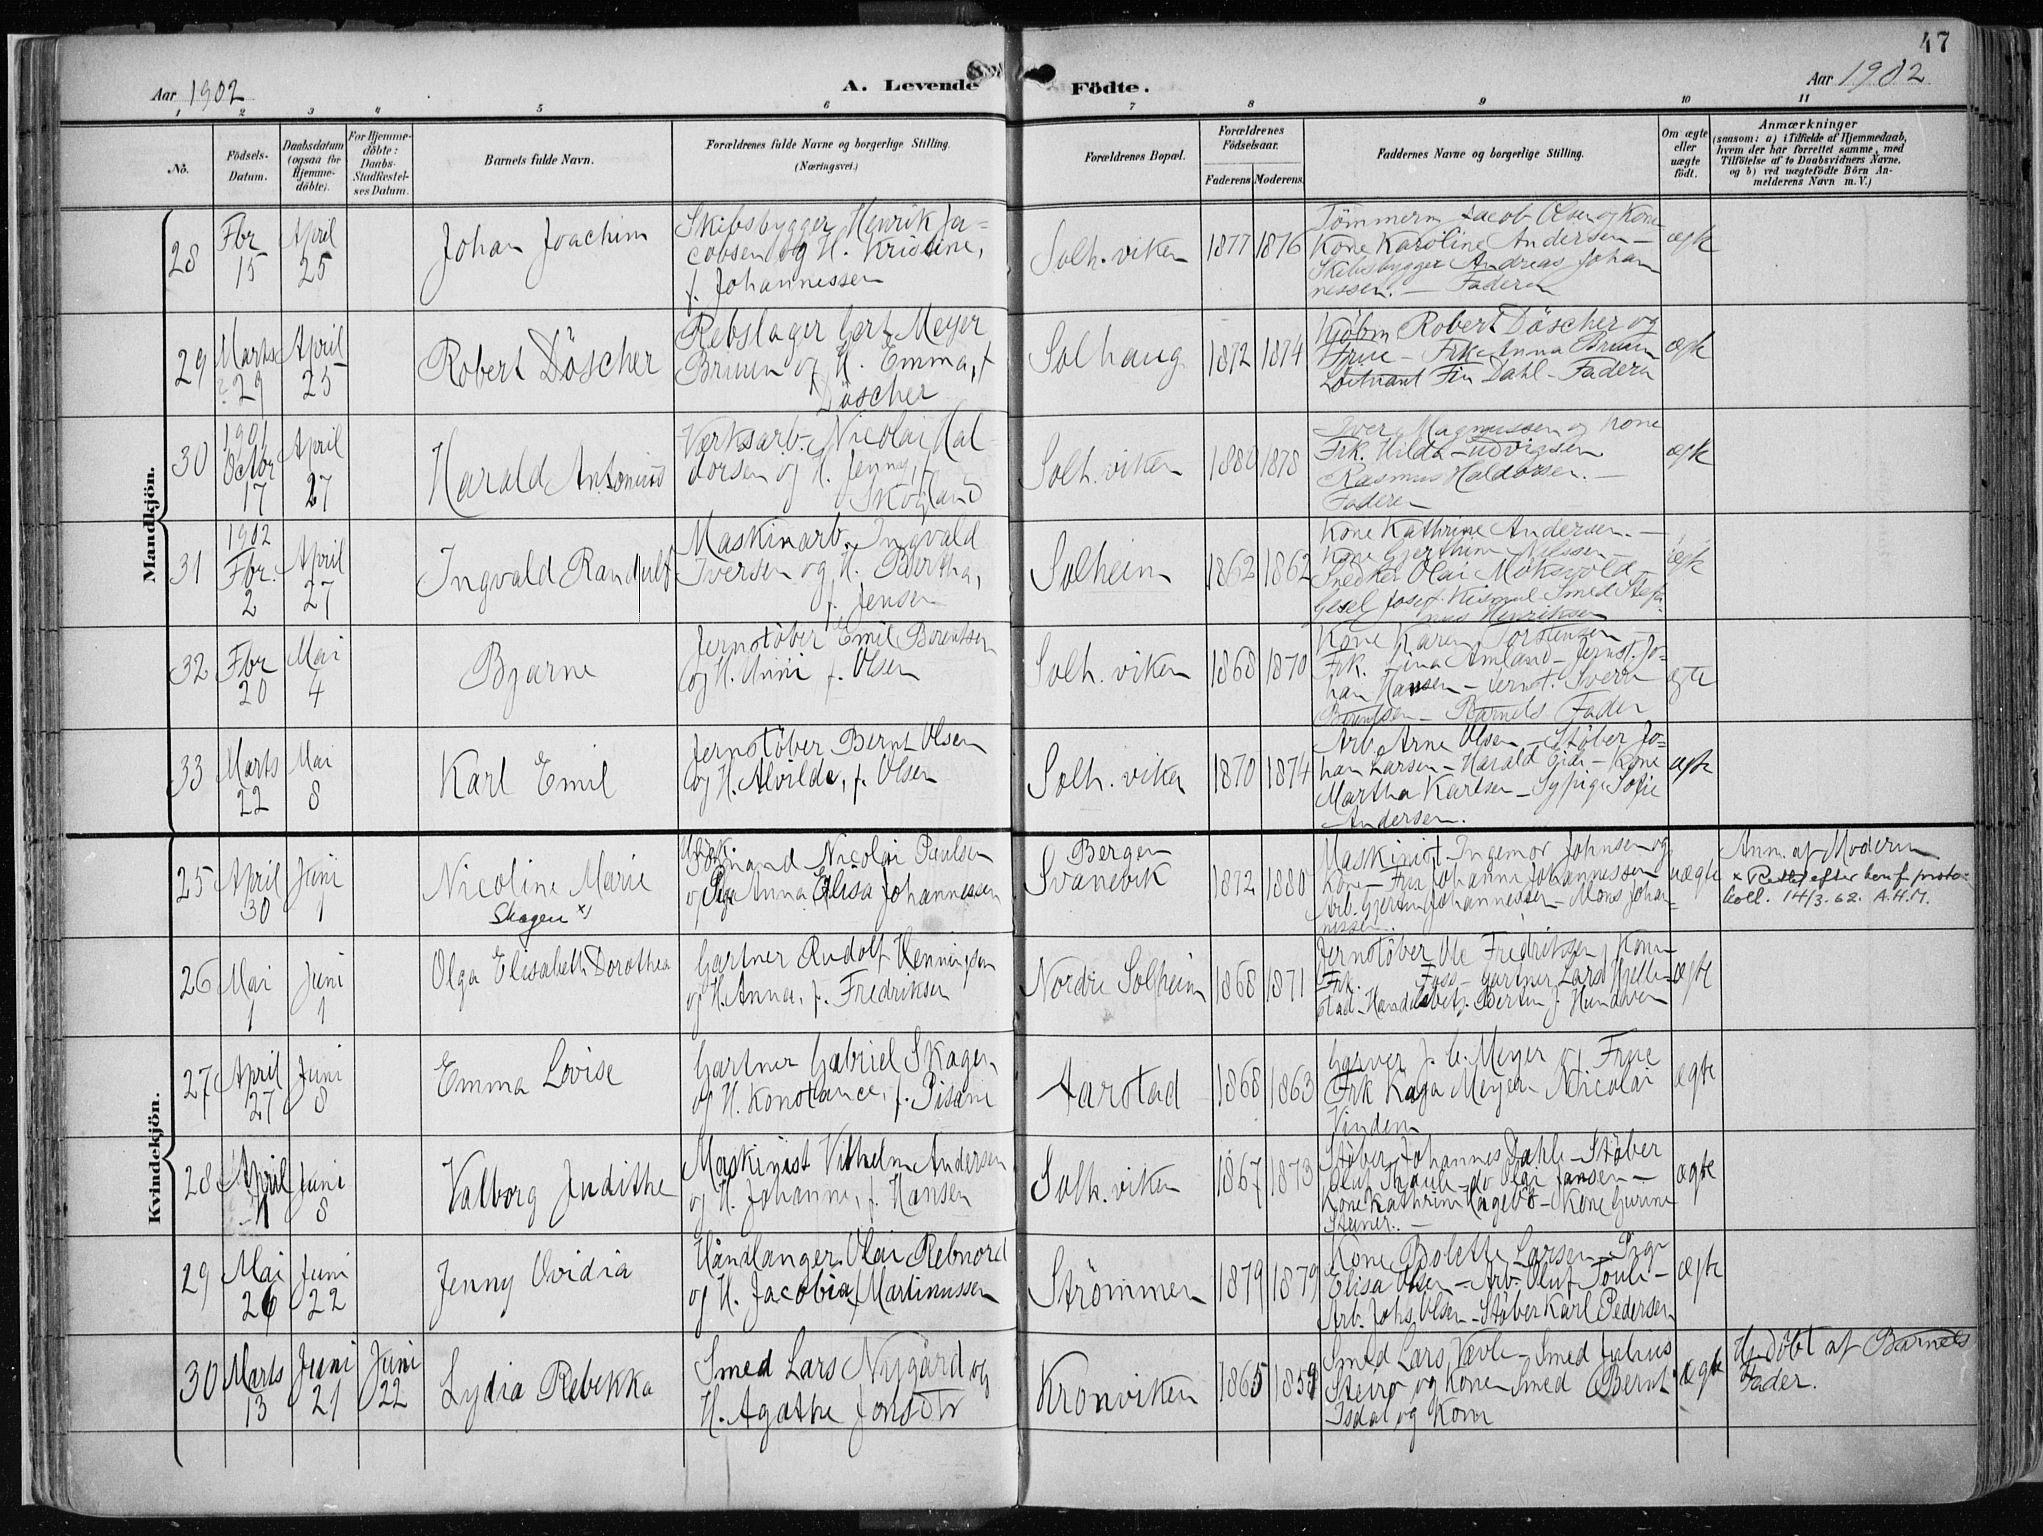 47
Aar 1902
A. Levende Födte.
Aar 1902
1 2 3 4 5 6 7 8 9 10 11
No.
Födsels-
Datum.
Daabsdatum
(ogsaa for
Hjemme-
döbte).
For Hjemme-
döbte:
Daabs-
Stadfæstel-
ses Datum.
Barnets fulde Navn.
Forældrenes fulde Navne og borgerlige Stilling.
(Næringsvei.)
Forældrenes Bopæl.
Forældrenes
Födselsaar.
Faderens Moderens
Faddernes Navne og borgerlige Stilling.
Om ægte
eller
uægte
födt.
Anmærkninger
(saasom: a) i Tilfælde af Hjemmedaab,
hvem der har forrettet samme, med
Tilföielse af to Daabsvidners Navne,
og b) ved uægtefödte Börn An-
melderens Navn m. V.)
Mandkjön.
28
Fbr
15
April
25
Johan Joachim
Skibsbygger Henrik Ja-
cobsen og H. Kristine,
f. Johannessen
Solh. viken
1877 1876
Tömmerm Jacob Olsen og Kone
Kone Karoline Andersen –
Skibsbygger Andreas Johan
nessen. – Faderen
ægte
29
Marts
29
April
25
Robert Döscher
Rebslager Gert Meyer
Bruun og H. Emma, f
Döscher
Solhaug
1872 1874
Kjøbm Robert Döscher og
Frue – Frk Anna Bruun
Löitnant Fin Dahl – Faderen
ægte
30
1901
Octbr
17
April
27
Harald Antonius
Verksarb. Nicolai Hal-
dorsen og H. Jenny, f.
Skogland
Solh. viken
1880 1878
Iver Magnussen og Kone
Frk. Hilda Ludvigsen
Rasmus Haldorsen. –
Faderen
ægte
31
1902
Fbr.
2
April
27
Ingvald Randulf
Maskinarb. Ingvald
Iversen og H. Bertha,
f. Jensen
Solheim
1862 1862
Kone Kathrine Andersen. –
Kone Gjerthine Nilssen –
Snedker Olai Moksvold –
Josef Smed
Henriksen
ægte
32
Fbr
20
Mai
4
Bjarne
Jernstöber Emil Berentsen
og H. Anni f. Olsen
Solh. viken
1868 1870
Kone Karen Torstensen –
Frk. Lina Amland – Jernst. Jo-
han Hansen – Jernst. Sverr
Berentsen – Barnets Fader
ægte
33
Marts
22
Mai
8
Karl Emil
Jernstöber Bernt Olsen
og H. Alvilde, f. Olsen
Solh. viken
1870 1874
Arb. Arne Olsen – Stöber Jo-
han Larsen – Harald Eide – Kone
Martha Karlsen – Sypige Sofie
Andersen.
ægte
Kvindekjön.
25
April
30
Juni
1
Nicoline Marie
Skagen x)
Nicolai Paulsen
og Pige Anna Elisa Johannessen
Bergen
Svanevik
1872 1880
Maskinist Ingemar Johnsen og
Kone – Frk Johanna Johannessen
Arb. Gjert Johannessen – Mons Johan-
nessen.
uægte
Anm. af Moderen
x Rettet efter konf. proto-
koll. 14/3. 62. A.H.M.
26
Mai
1
Juni
1
Olga Elisabeth Dorothea
Gartner Rudolf Henningsen
og H. Anna, f. Fredriksen
Nordre Solheim
1868 1871
Jernstöber Ole Fredriksen, Kone
Frk. Foss – Gartner Lars Hjelle-
stad – Handelsbetj. Hundven
ægte
27
April
27
Juni
8
Emma Lovise
Gartner Gabriel Skagen
og H. Konstance, f. Pisani
Aarstad
1868 1863
Garver J. C. Meyer og Frue
Frk Kaja Meyer Nicolai
Vindenes
ægte
28
April
4
Juni
8
Valborg Judithe
Maskinist Vilhelm Andersen
og H. Johanne, f. Hansen
Solh. viken
1867 1873
Stöber Johannes Dahle – Stöber
Oluf Skaule – do Olai Jansen –
Kone Kathrine Hageb – Kone Gurine
Steiner. –
ægte
29
Mai
26
Juni
22
Jenny Ovidia
Håndlanger Olai Rebnord
og H. Jacobia, f Martinussen
Strømmen
1879 1879
Kone Bolette Larsen – Pige
Elisa Olsen – Arb. Oluf Pouli –
Arb. Johs Olsen – Støber Karl Pedersen
ægte
30
Marts
13
Juni
21
Juni
22
Lydia Rebekka
Smed Lars Nygård og
H. Agathe Jonsdtr
Kronviken
1865 1859
Smed Lars Vavle – Smed Julius
Steiro og Kone Smed Bernt
Isdal og Kone
ægte
Hj. döbt af Barnets
Fader.